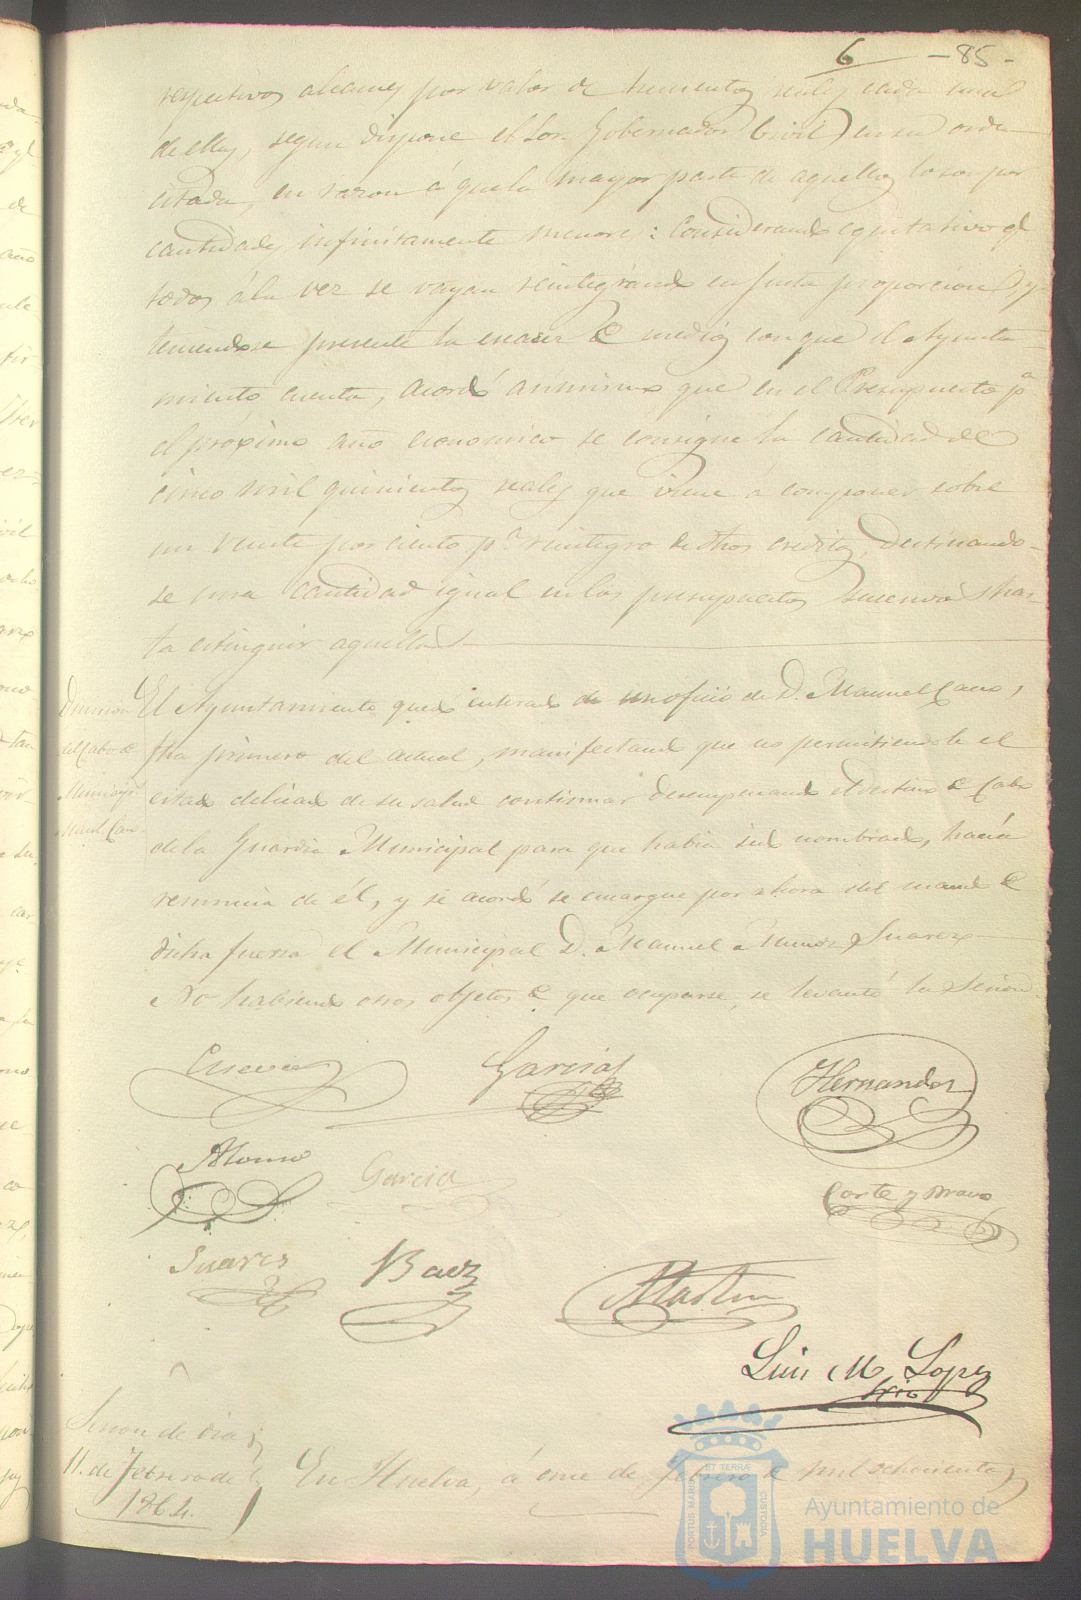 6 - 85 -
respectivos alcances por valor de trescientos reales cada uno
de ellos, segun dispone el Sor. Gobernador Civil en su orden
citada, en razon á que la mayor parte de aquellos lo son por
cantidades infinitamente menores: Considerando equitativo q.e
todos á la vez se vayan reintegrando en justa proporcion, y
teniendose presente la escasez de medios con que el Ayunta-
miento cuenta, acordó asimismo que en el Presupuesto p.a
el proximo año economico se consigne la cantidad de
cinco mil quinientos reales que viene á componer sobre
un veinte por ciento p.a reintegro de dhos creditos, destinando-
se una cantidad igual en los presupuestos sucesivos has-
ta estinguir aquellos.
Dimision
del Cabo de
Municip.
Man.l Can-
El Ayuntamiento quedó enterado de un oficio de D. Manuel Cano,
fha primero del actual, manifestando que no permitiendole el
estado delicado de su salud continuar desempeñando el destino de Cabo
de la Guardia Municipal para que habia sido nombrado, hacia
renuncia de él, y se acordó se encargue por ahora del mando de
dicha fuerza el Municipal D. Manuel Muñoz Suarez.
No habiendo otros objetos de que ocuparse, se levantó la Sesion.
Garcia
Hernandez
Alonso
Garcia
Corte y Bravo
Suares
Baez
Martin
Luis M. Lopez
Srio
Sesion de dia
11. de Febrero de
1864.
En Huelva, á once de Febrero de mil ochocientos
PORTUS MARIS ET TERRAE CUSTODIA
Ayuntamiento de
HUELVA